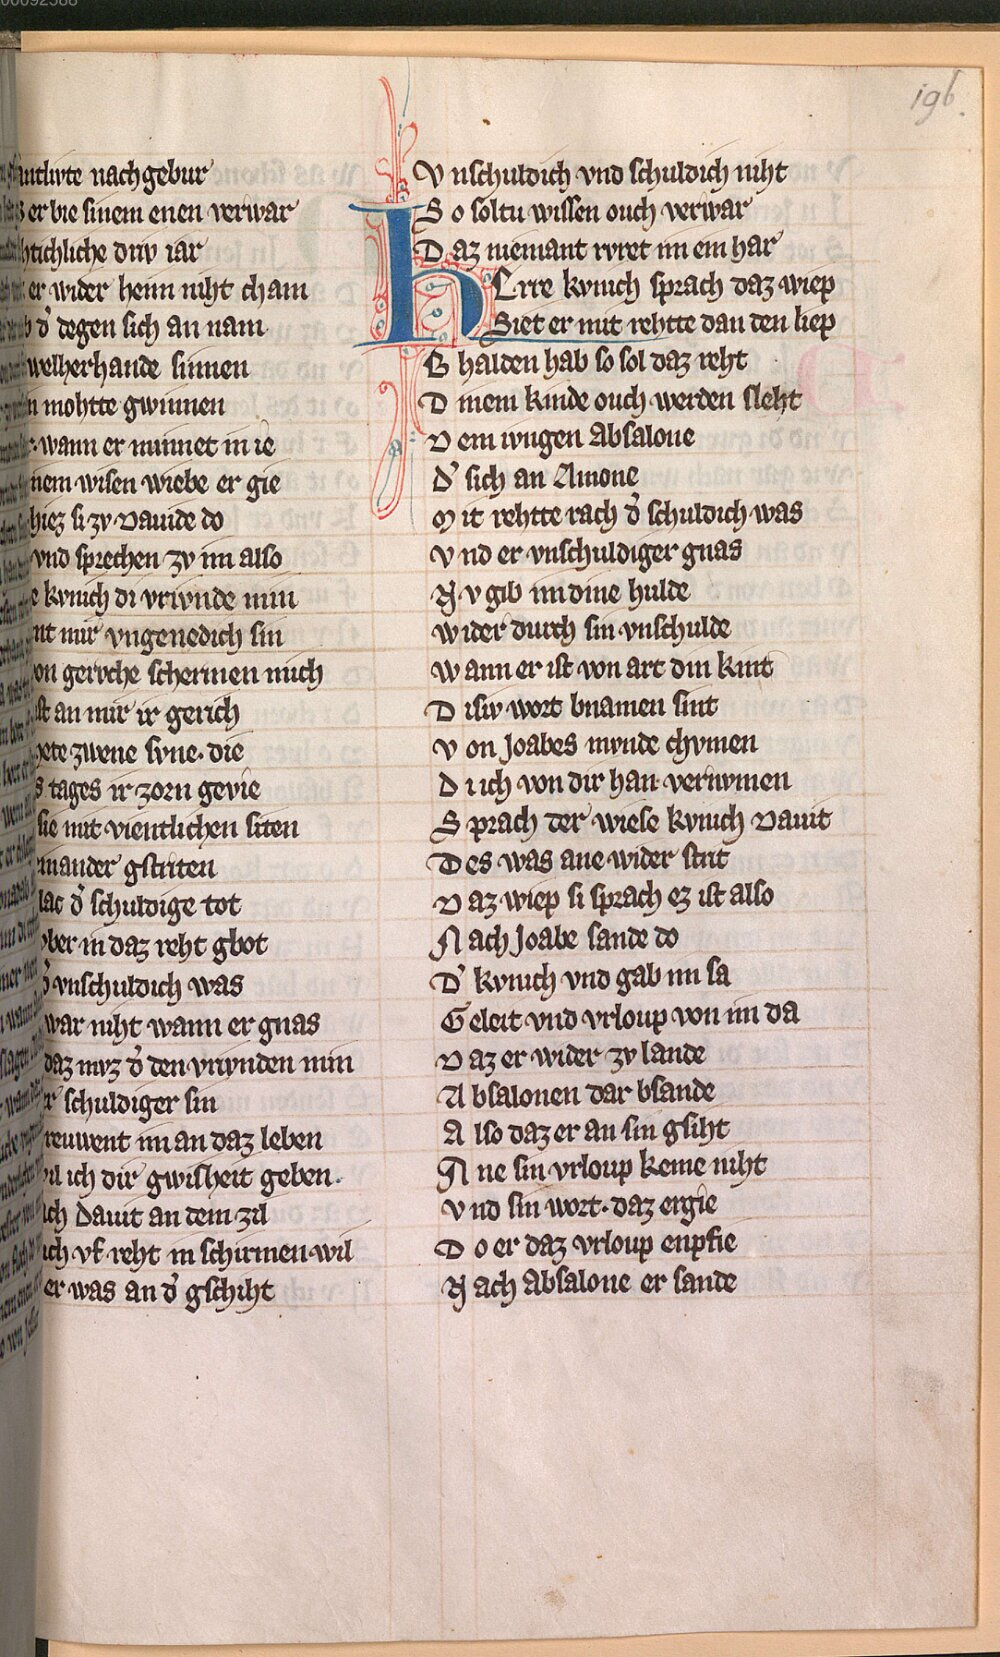 196.
nachgebur
er bie sinem enen verwar
driv iar
er wider heim niht cham
d̕ degen sich an nam
welherhande sinnen
mohtte gwinnen
wann er minnet in ie
wisen wiebe er gie
hiez si zv Dauide do
vnd sprechen zv im also
kvnich di vrivnde min
mir vngenedich sin
gervche schermen mich
an mir ir gerich
zwene svne. die
tages ir zorn gevie
sie mit vientlichen siten
gstriten
d̕ schuldige tot
in daz reht gbot
vnschuldich was
war niht wann er gnas
daz mvz d̕ den vrivnden min
schuldiger sin
im an daz leben
ich dir gwisheit geben.
Dauit an dem zil
ich vf reht in schirmen wil
er was an d̕ gschiht
Vnschuldich vnd schuldich niht
So soltu wissen ouch verwar
Daz niemant rvret im ein har
HErre kvnich sprach daz wiep
Siet er mit rehtte dan den liep
Bhalden hab so sol daz reht
Dinem kinde ouch werden sleht
Dem ivngen Absalone
D̕ sich an Amone
Mit rehtte rach d̕ schuldich was
Vnd er vnschuldiger gnas
Nv gib im dine hulde
Wider durch sin vnschulde
Wann er ist von art din kint
Disiv wort bnamen sint
Von Joabes mvnde chvmen
Di ich von dir han vernvmen
Sprach der wiese kvnich Dauit
Des was ane wider strit
Daz wiep si sprach ez ist also
Nach Joabe sande do
D̕ kvnich vnd gab im sa
Geleit vnd vrloup von im da
Daz er wider zv lande
Absalonen dar bsande
Also daz er an sin gsiht
Ane sin vrloup keme niht
Vnd sin wort. daz ergie
Do er daz vrloup enpfie
Nach Absalone er sande